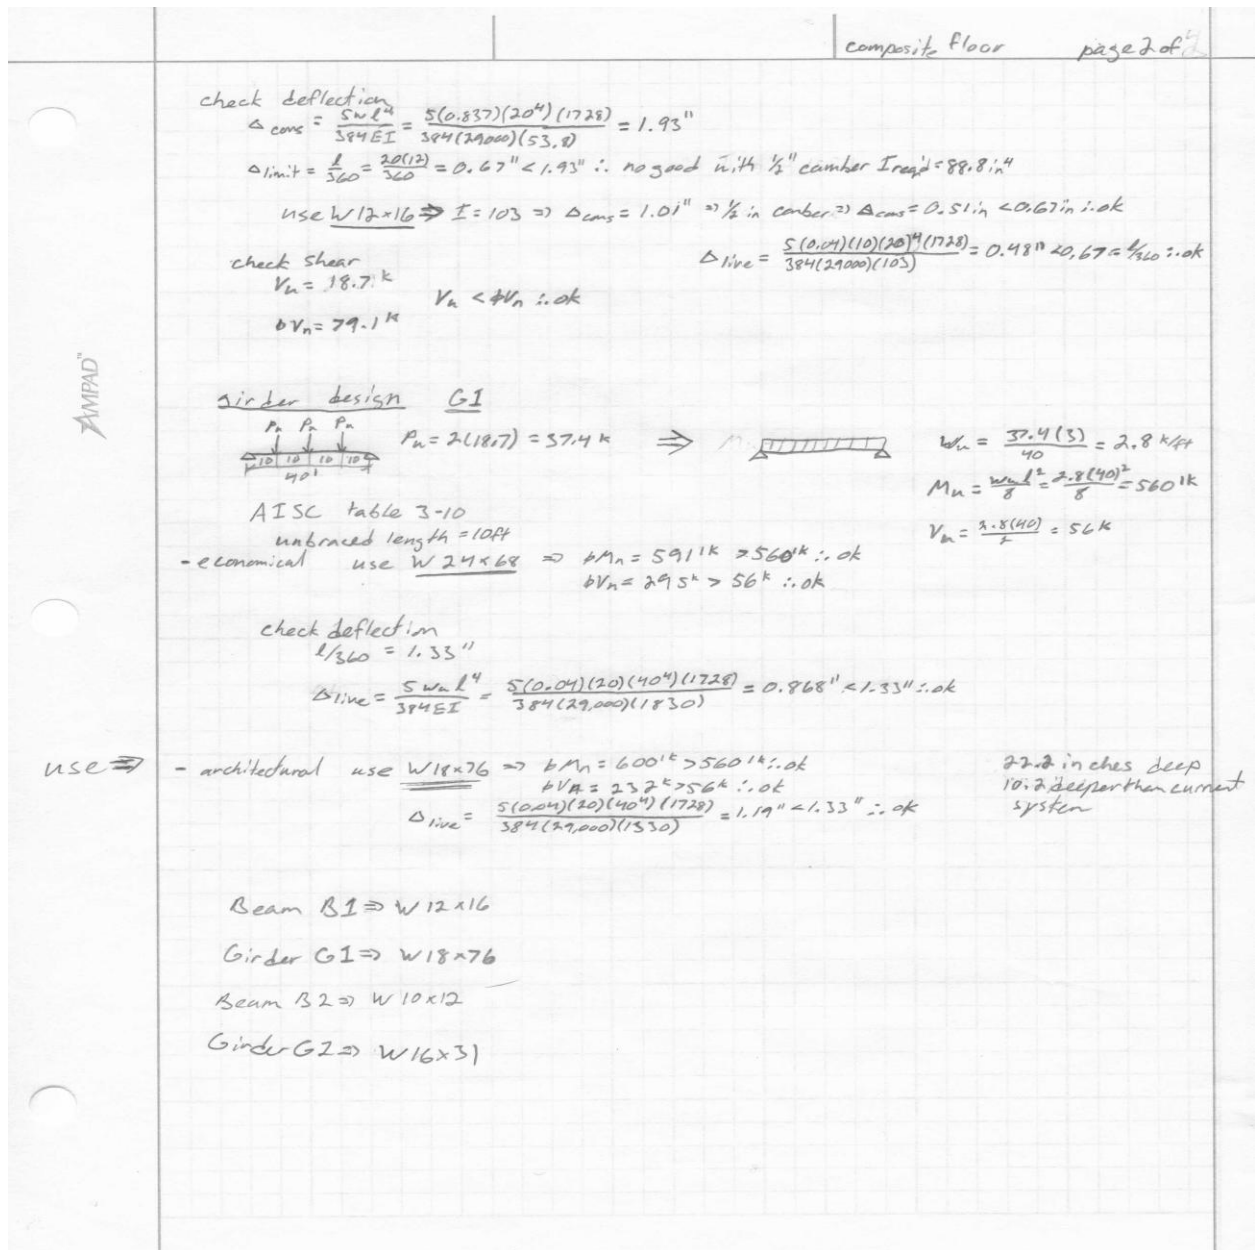 composite floor page 2 of
check deflection
Δcons = 5wl⁴/384EI = 5(0.837)(20⁴)(1728)/384(29000)(53.8) = 1.93"
Δlimit = l/360 = 20(12)/360 = 0.67" < 1.93" ∴ no good with ½" camber Ireq'd = 88.8in⁴
use W12×16 ⇒ I = 103 ⇒ Δcons = 1.01" ⇒ ½ in camber ⇒ Δcons = 0.51in < 0.67in ∴ ok
Δlive = 5(0.04)(10)(20)⁴(1728)/384(29000)(103) = 0.48" < 0.67 = l/360 ∴ ok
check shear
Vu = 18.7k
Vu < ϕVn ∴ ok
ϕVn = 79.1k
AMPAD™
girder design G1
Pu Pu Pu
Pu = 2(18.7) = 37.4 k ⇒
wu = 37.4(3)/40 = 2.8 k/ft
10 10 10 10
40'
Mu = wul²/8 = 2.8(40)²/8 = 560 'k
AISC table 3-10
Vu = 2.8(40)/2 = 56 k
unbraced length = 10ft
- economical use W24×68 ⇒ ϕMn = 591'k > 560'k ∴ ok
ϕVn = 295k > 56k ∴ ok
check deflection
l/360 = 1.33"
Δlive = 5wul⁴/384EI = 5(0.04)(20)(40⁴)(1728)/384(29,000)(1830) = 0.868" < 1.33" ∴ ok
use ⇒ - architectural use W18×76 ⇒ ϕMn = 600'k > 560'k ∴ ok
ϕVn = 232k > 56k ∴ ok
Δlive = 5(0.04)(20)(40⁴)(1728)/384(29,000)(1330) = 1.19" < 1.33" ∴ ok
22.2 inches deep
10.2 deeper than current
system
Beam B1 ⇒ W12×16
Girder G1 ⇒ W18×76
Beam B2 ⇒ W10×12
Girder G2 ⇒ W16×31